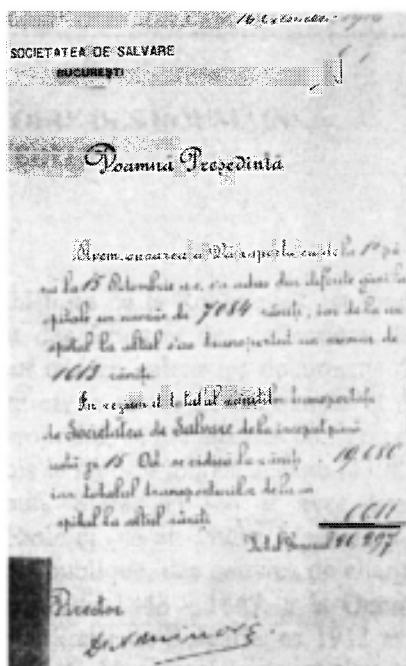 16 Octombrie
SOCIETATEA DE SALVARE
BUCUREȘTI
Doamnă Președintă
Avem onoarea a Vă raporta că de la 1 pâ
nă la 15 Octombrie a.c. s'a adus din diferite gări la
spitale un număr de 7084 răniți, iar de la un
spital la altul s'au transportat un număr de
1613 răniți
În rezumat totalul răniților transportați
de Societatea de Salvare de la început până
la 15 Oct. se ridică la răniți 19,686
iar totalul transporturilor de la un
spital la altul răniți 6,611
Total General 26,297
Director